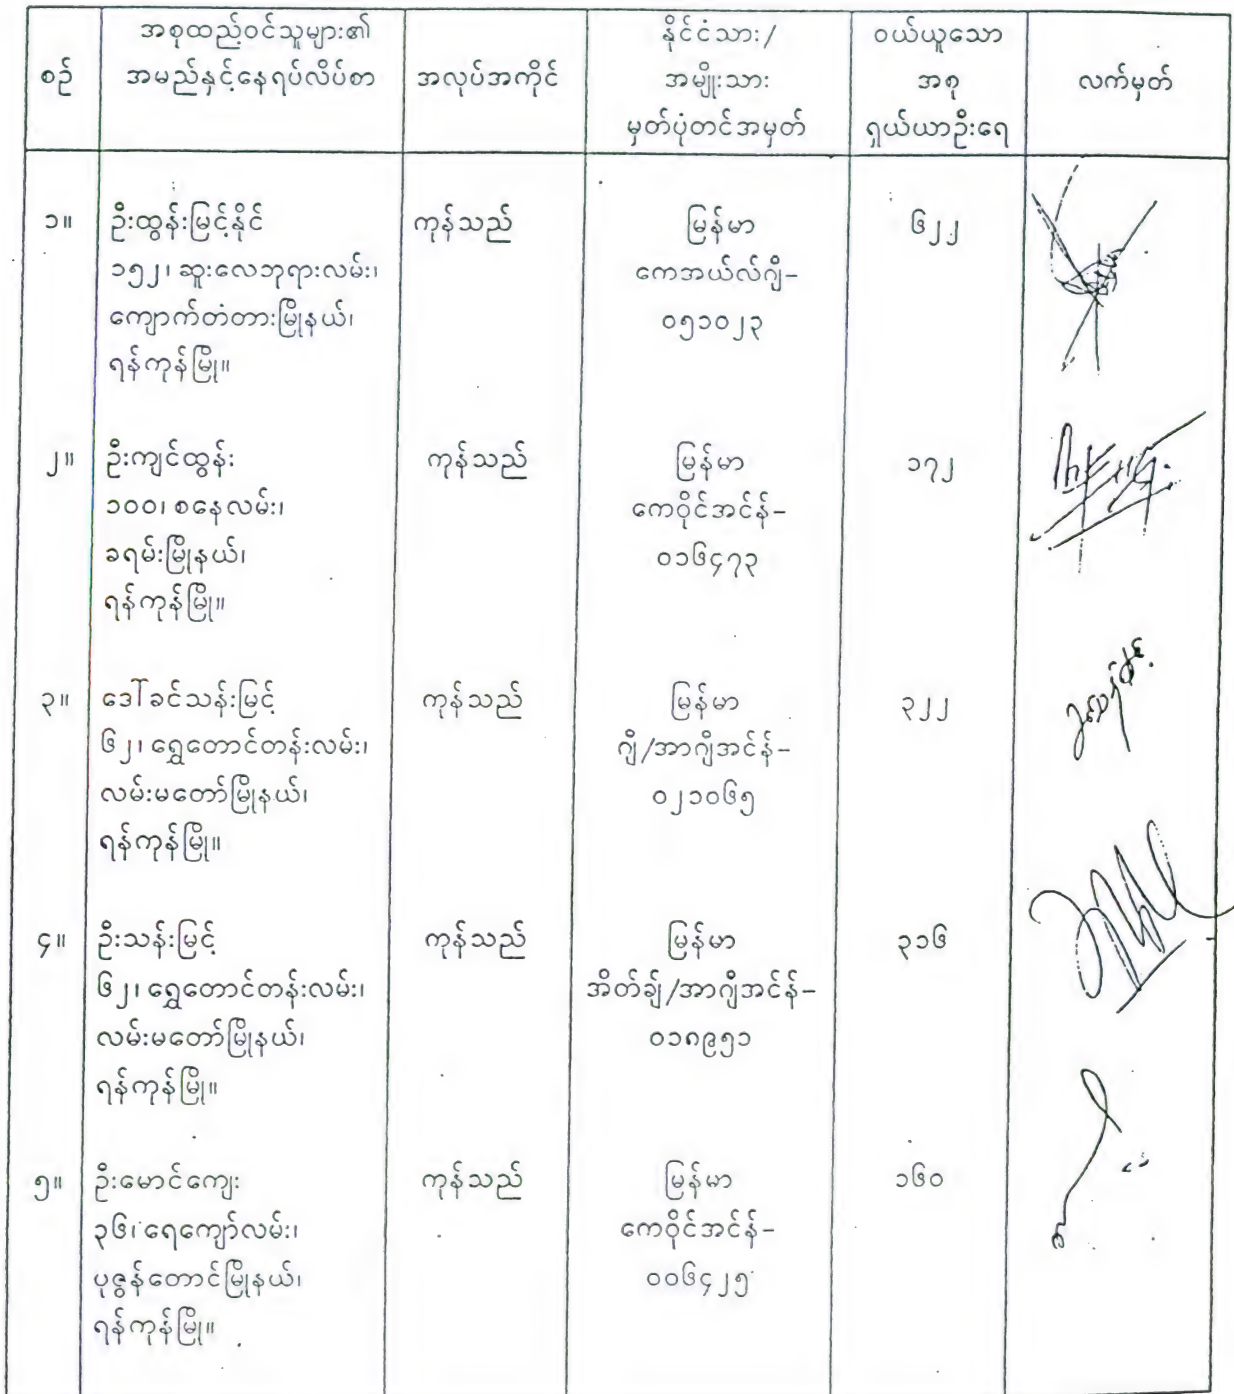 စဉ်
အစုထည့်ဝင်သူများ၏
အမည်နှင့်နေရပ်လိပ်စာ
အလုပ်အကိုင်
နိုင်ငံသား/
အမျိုးသား
မှတ်ပုံတင်အမှတ်
ဝယ်ယူသော
အစု
ရှယ်ယာဦးရေ
လက်မှတ်
၁။
ဦးထွန်းမြင့်နိုင်
၁၅၂၊ ဆူးလေဘုရားလမ်း၊
ကျောက်တံတားမြို့နယ်၊
ရန်ကုန်မြို့။
ကုန်သည်
မြန်မာ
ကေအယ်လ်ဂျီ-
၀၅၁၀၂၃
၆၂၂
၂။
ဦးကျင်ထွန်း
၁၀၀၊ စနေလမ်း၊
ခရမ်းမြို့နယ်၊
ရန်ကုန်မြို့။
ကုန်သည်
မြန်မာ
ကေဝိုင်အင်န်-
၀၁၆၄၇၃
၁၇၂
၃။
ဒေါ်ခင်သန်းမြင့်
၆၂၊ ရွှေတောင်တန်းလမ်း၊
လမ်းမတော်မြို့နယ်၊
ရန်ကုန်မြို့။
ကုန်သည်
မြန်မာ
ဂျီ/အာဂျီအင်န်-
၀၂၁၀၆၅
၃၂၂
၄။
ဦးသန်းမြင့်
၆၂၊ ရွှေတောင်တန်းလမ်း၊
လမ်းမတော်မြို့နယ်၊
ရန်ကုန်မြို့။
ကုန်သည်
မြန်မာ
အိတ်ချ်/အာဂျီအင်န်-
၀၁၈၉၅၁
၃၁၆
၅။
ဦးမောင်ကျေး
၃၆၊ ရေကျော်လမ်း၊
ပုဇွန်တောင်မြို့နယ်၊
ရန်ကုန်မြို့။
ကုန်သည်
မြန်မာ
ကေဝိုင်အင်န်-
၀၀၆၄၂၅
၁၆၀